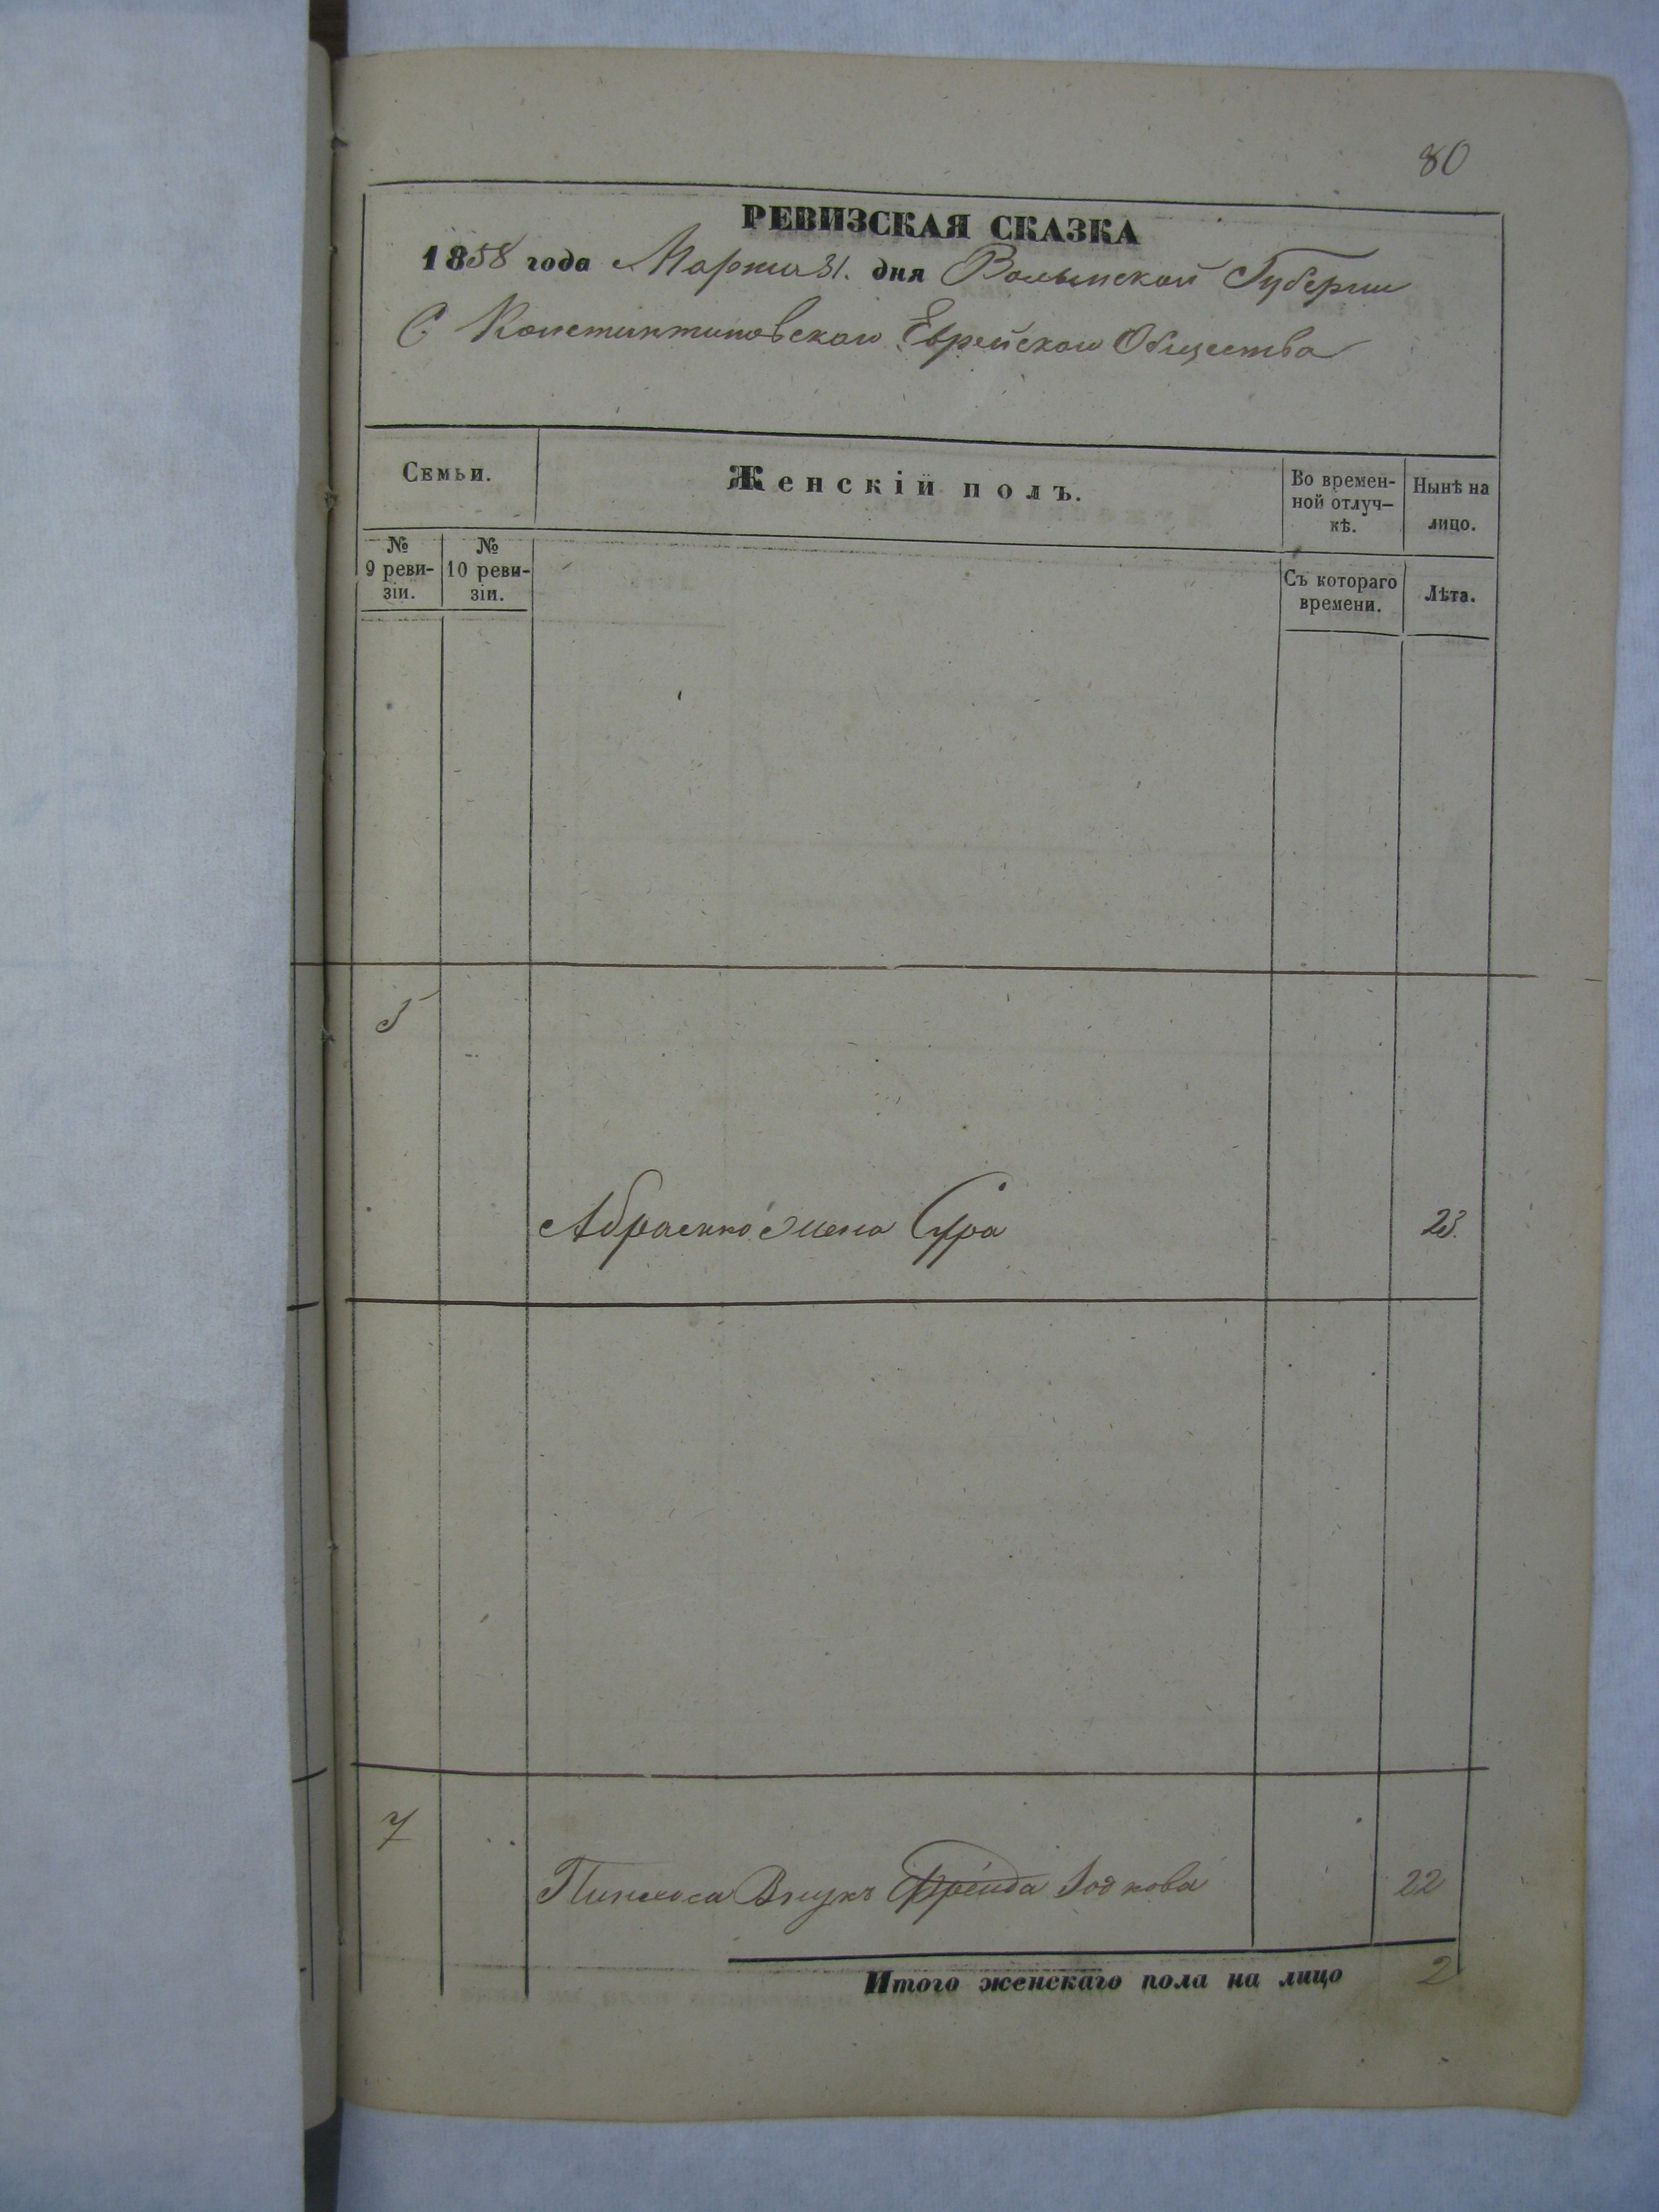 80
РЕВИЗСКАЯ СКАЗКА
1858 года Марта 31. дня Волынской Губернии
С Константиновскаго Еврейскаго Общества
Семьи.
Женскій полъ.
Во времен-
ной отлуч-
кѣ.
Нынѣ на
лицо.
№
9 реви-
зіи.
№
10 реви-
зіи.
Съ котораго
времени.
Лѣта.
5
Абрамка жена Сура
23.
7
Пинхоса Внукъ Фрейда
22
Итого женскаго пола на лицо
2